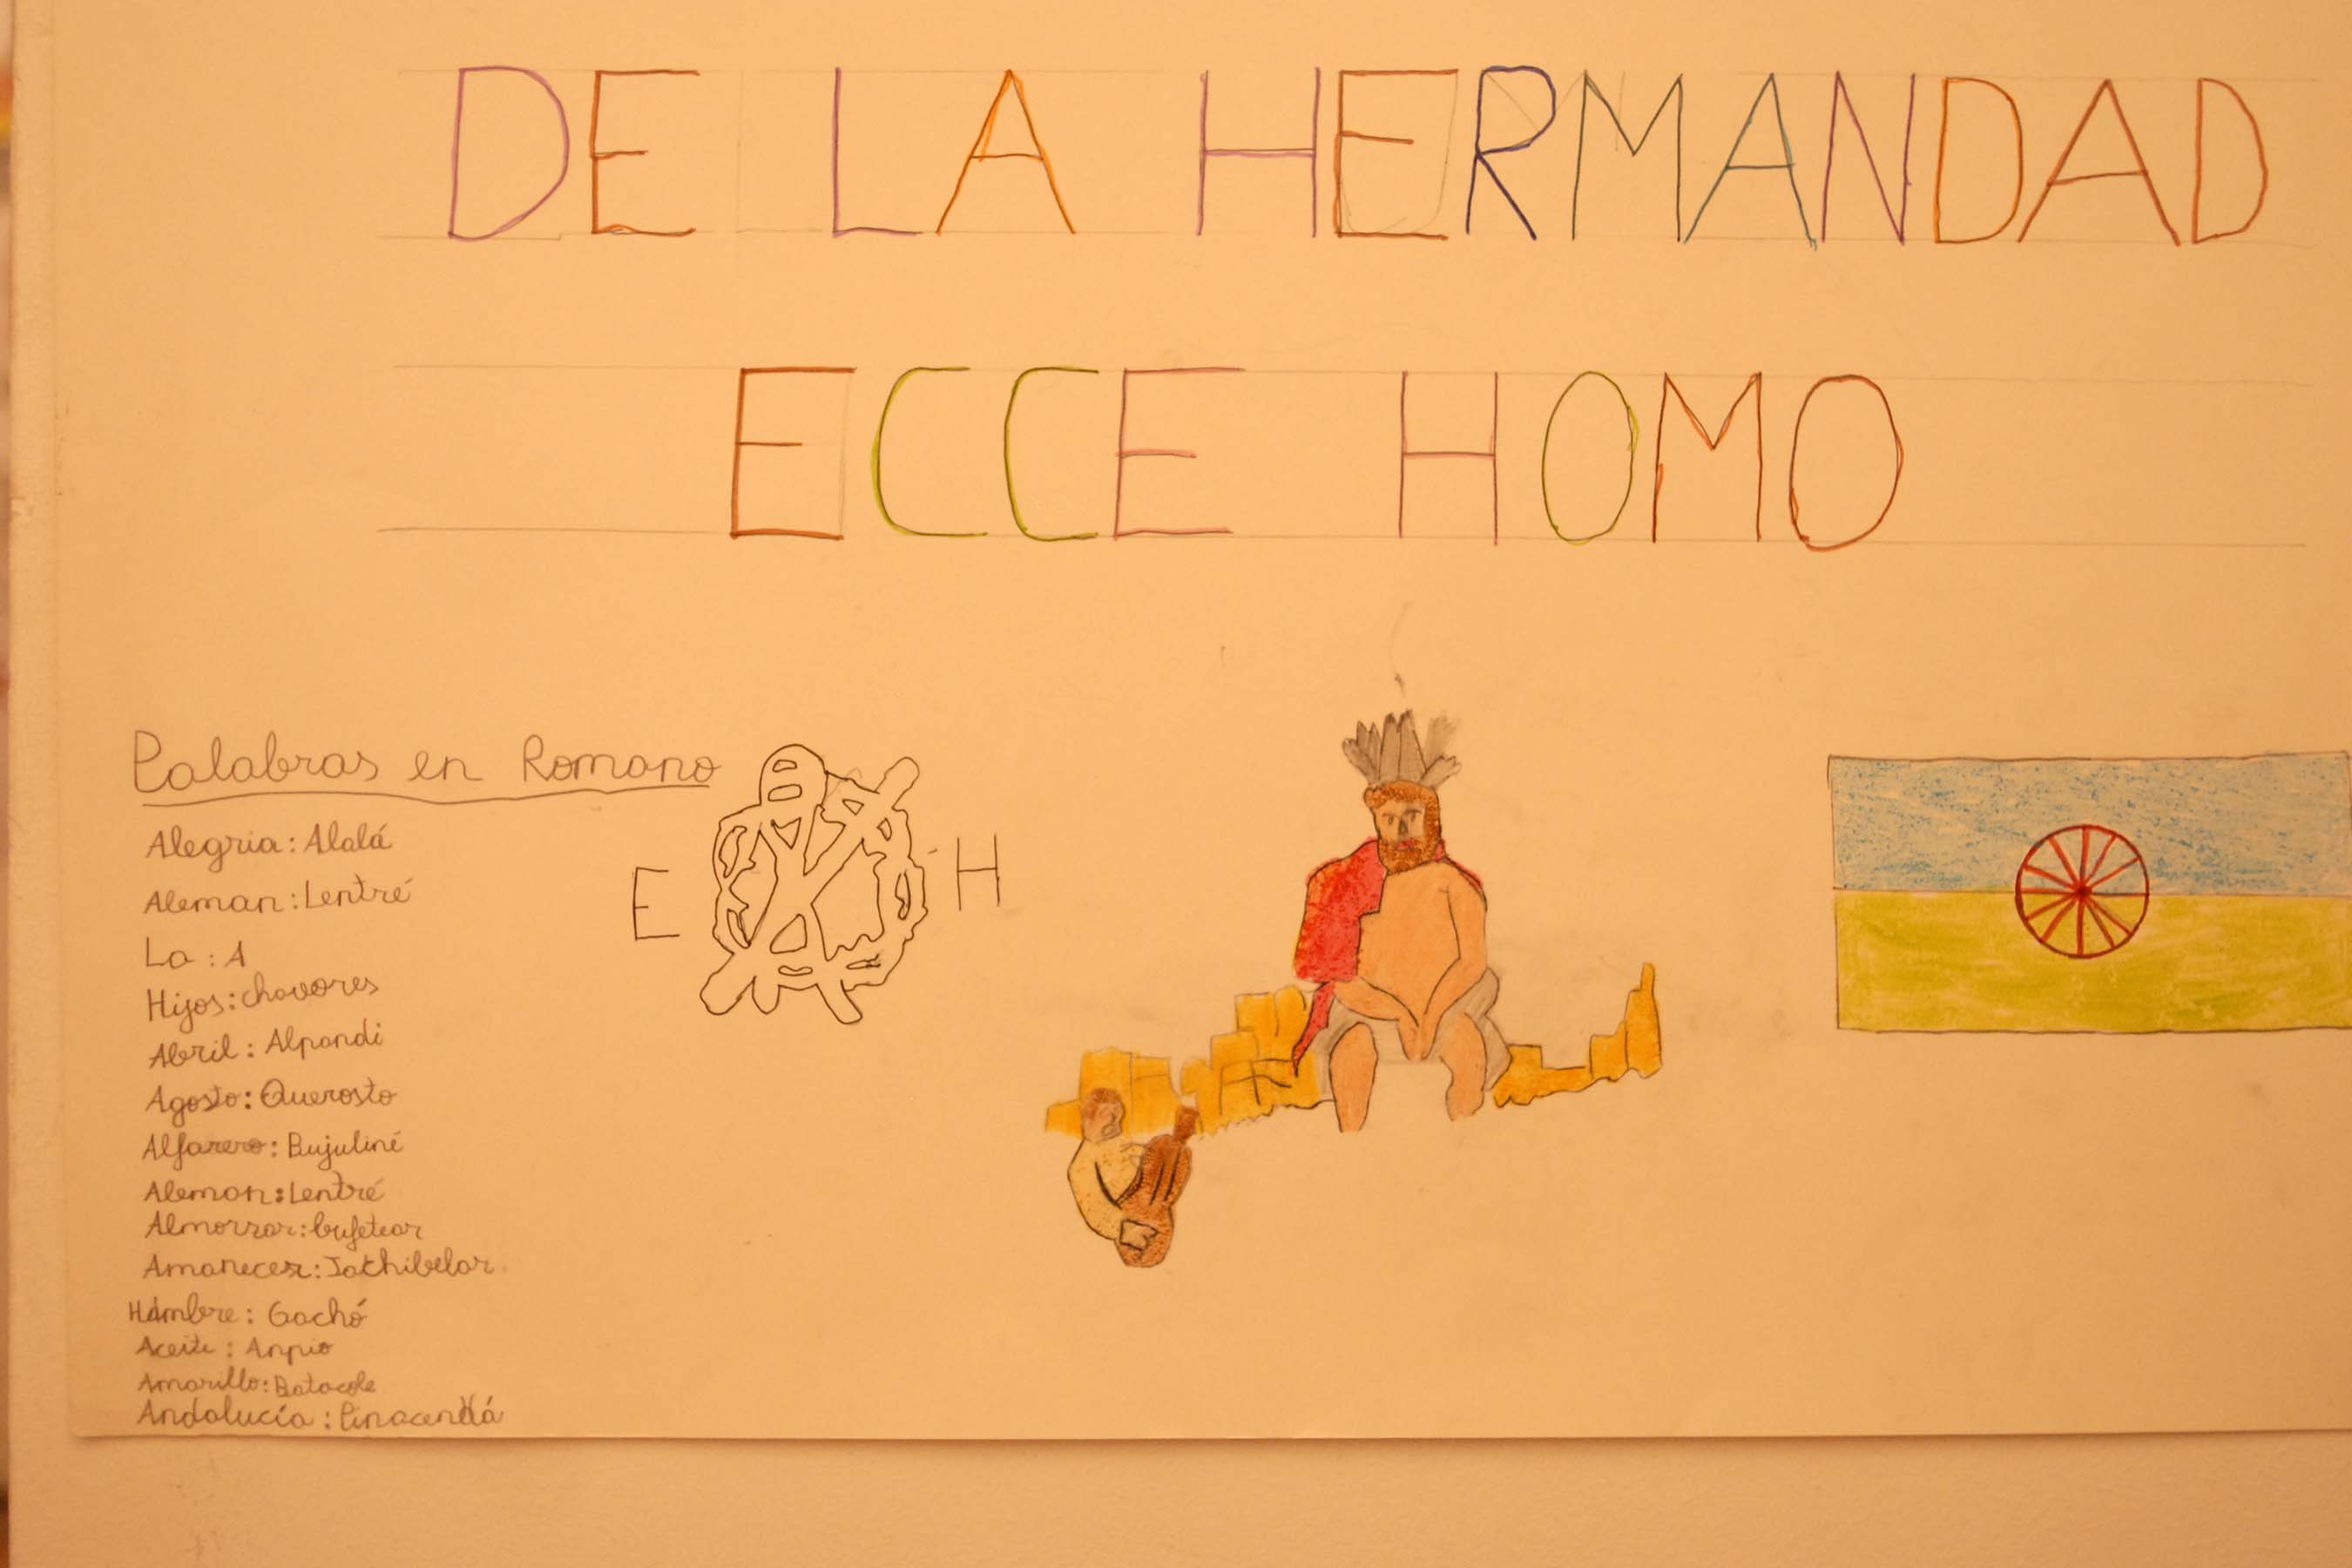 DE LA HERMANDAD
ECCE HOMO
Palabras en Romano
E H
Alegria: Alalá
Aleman: Lentré
La: A
Hijos: chavores
Abril: Alpandi
Agosto: Querosto
Alfarero: Bujuliné
Aleman: Lentré
Almorzar: bufetear
Amanecer: Jachibelar
Hambre: Gachó
Aceite: Anpio
Amarillo: Batacole
Andalucía: Pinacendá